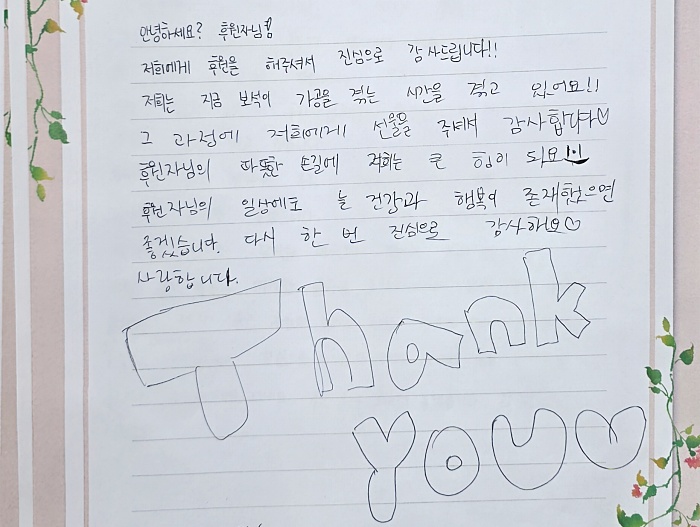 안녕하세요? 후원자님
저희에게 후원을 해주셔서 진심으로 감사드립니다!!
저희는 지금 보석이 가공을 겪는 시간을 겪고 있어요!!
그 과정에 저희에게 선물을 주셔서 감사합니다♡
후원자님의 따뜻한 손길에 저희는 큰 힘이 되요
후원자님의 일상에도 늘 건강과 행복이 존재했으면
좋겠습니다. 다시 한 번 진심으로 감사해요♡
사랑합니다.
Thank
YOU♡